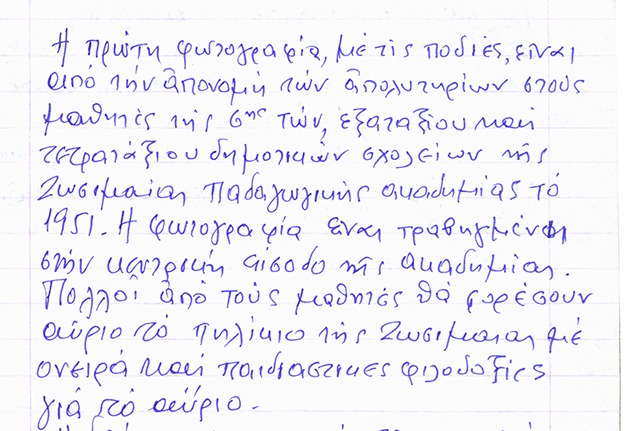 Ἡ πρώτη φωτογραφία, μὲ τὶς ποδιές, εἶναι
ἀπό τήν ἀπονομή τῶν ἀπολυτηρίων στούς
μαθητές τῆς 6ης τῶν, ἑξαταξίου καί
τετραταξίου δημοτικῶν σχολείων τῆς
Ζωσιμαίας Παδαγωγικῆς ακαδημίας τό
1951. Ἡ φωτογραφία είναι τραβηγμένη
στήν κεντρική εἴσοδο τῆς ακαδημίας.
Πολλοί ἀπό τούς μαθητές θά φορέσουν
αύριο τό πηλίκιο τῆς Ζωσιμαίας μέ
ονειρά καί παιδιαστικες φιλοδοξίες
γιά τό αύριο.